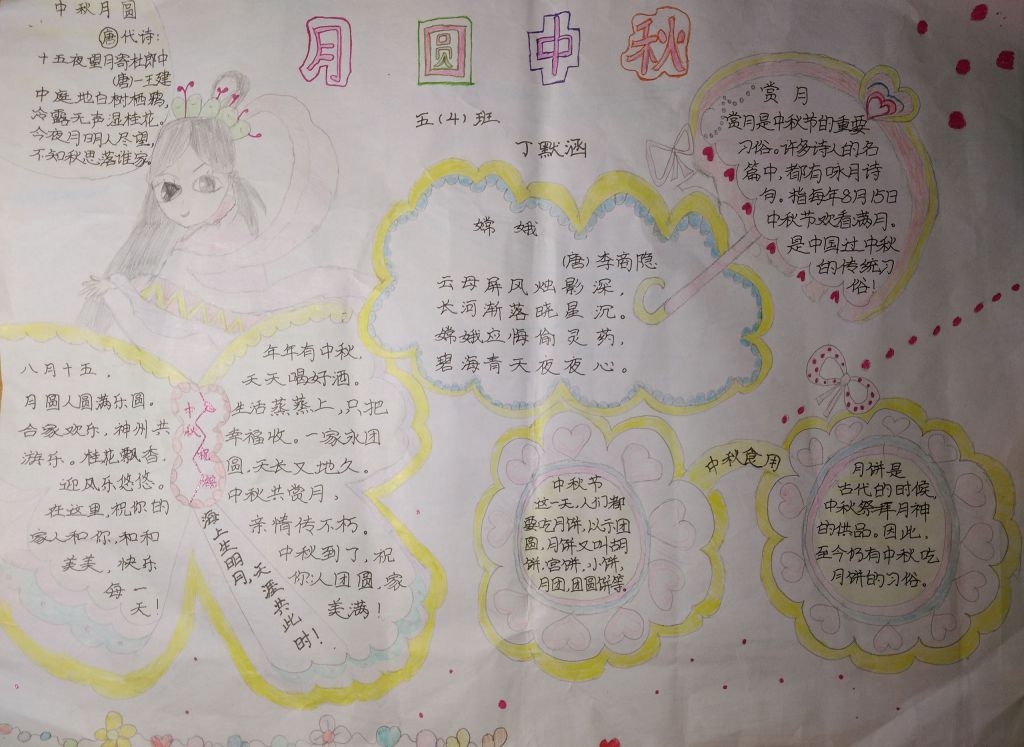 月圆中秋
五(4)班
丁默涵
中秋月圆
唐代诗:
十五夜望月寄杜郎中
(唐)一王建
中庭地白树栖鸦,
冷露无声湿桂花。
今夜月明人尽望,
不知秋思落谁家。
嫦娥
(唐)李商隐
云母屏风烛影深,
长河渐落晓星沉。
嫦娥应悔偷灵药,
碧海青天夜夜心。
赏月
赏月是中秋节的重要
习俗。许多诗人的名
篇中,都有咏月诗
句。指每年8月15日
中秋节欢看满月。
是中国过中秋
的传统习
俗!
八月十五,
月圆人圆满乐圆。
合家欢乐,神州共
游乐。桂花飘香,
迎风乐悠悠。
在这里,祝你的
家人和你,和和
美美,快乐
每一
天!
中秋
祝
年年有中秋,
天天喝好酒。
生活蒸蒸上,只把
幸福收。一家永团
圆,天长又地久。
中秋共赏月,
亲情传不朽。
中秋到了,祝
你认团圆,家
美满!
海上生明月,天涯共此时!
中秋食用
中秋节
这一天,人们都
要吃月饼,以示团
圆,月饼又叫胡
饼,宫饼,小饼,
月团,团圆饼等。
月饼是
古代的时候,
中秋祭拜月神
的供品。因此,
至今仍有中秋吃
月饼的习俗。